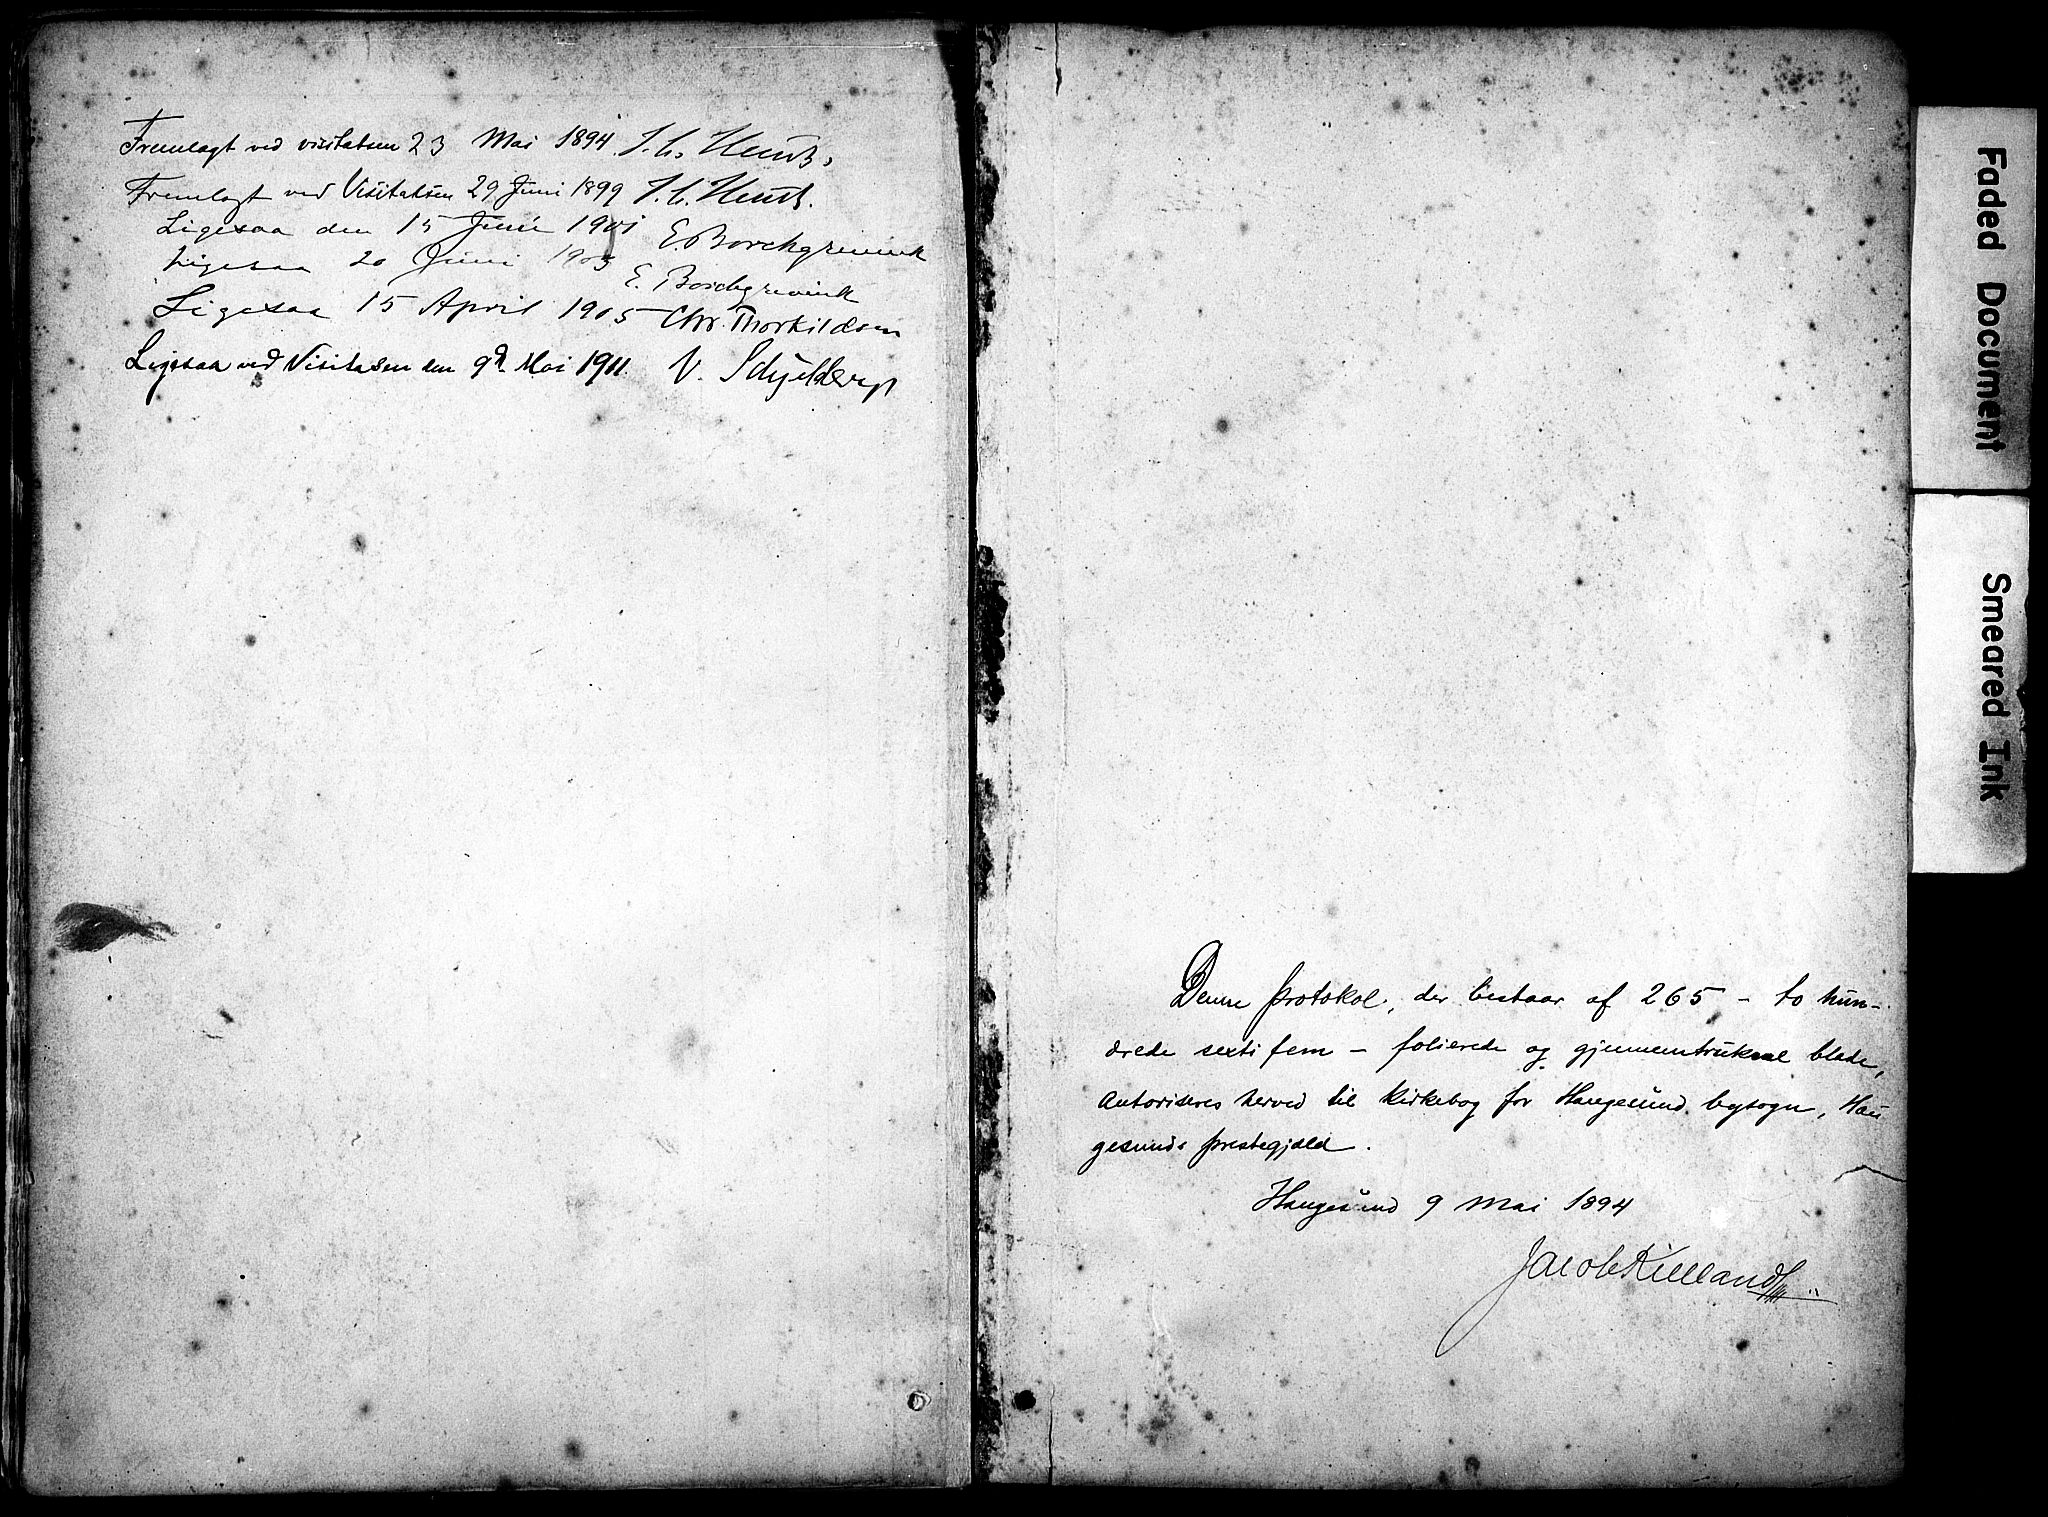 Fremlagt ved visitatsen 23 Mai 1894. J. C. Heuch.
Fremlagt ved Visitatsen 29 Juni 1899 J. C. Heuch.
Ligesaa den 15 Juni 1901 E. Borchgrevink
Ligesaa 20 Juni 1903
E. Borchgrevink
Ligesaa 15 April 1905 Chr. Thorkildsen
Ligesaa ved Visitasen den 9d. Mai 1911. V. Schjelderup
Denne protokol, der bestaar af 265 - to hun-
drede sexti fem - folierede og gjennemtrukne blade,
autoriseres herved til kirkebog for Haugesund bysogn, Hau
gesunds prestegjæld.
Haugesund 9 Mai 1894
Jacob Kielland
Faded Document
Smeared Ink